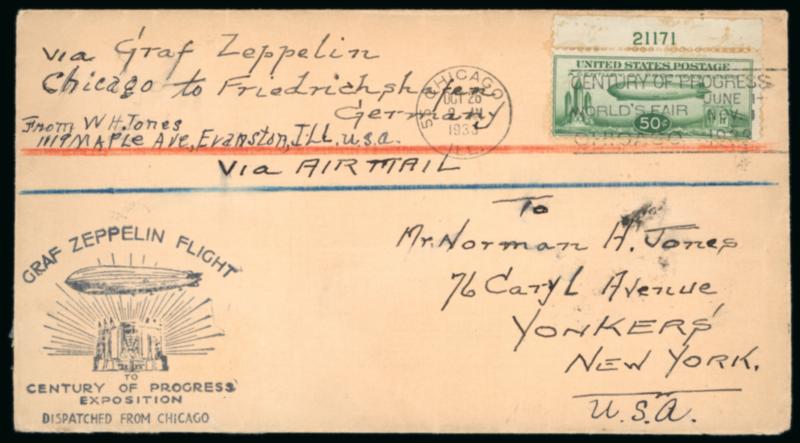 via Graf Zeppelin
Chicago to Friedrichshafen
Germany
From W H. Jones
1119 MAPLE Ave, Evanston, Ill, u.s.a.
Via AIR MAIL
21171
UNITED STATES POSTAGE
50¢
CHICAGO
OCT 26
1933
ILL.
CENTURY OF PROGRESS
WORLD'S FAIR
JUNE
NOV
CHICAGO
To
Mr. Norman H. Jones
76 Caryl Avenue
YONKERS
NEW YORK.
U.S.A.
GRAF ZEPPELIN FLIGHT
TO
CENTURY OF PROGRESS
EXPOSITION
DISPATCHED FROM CHICAGO